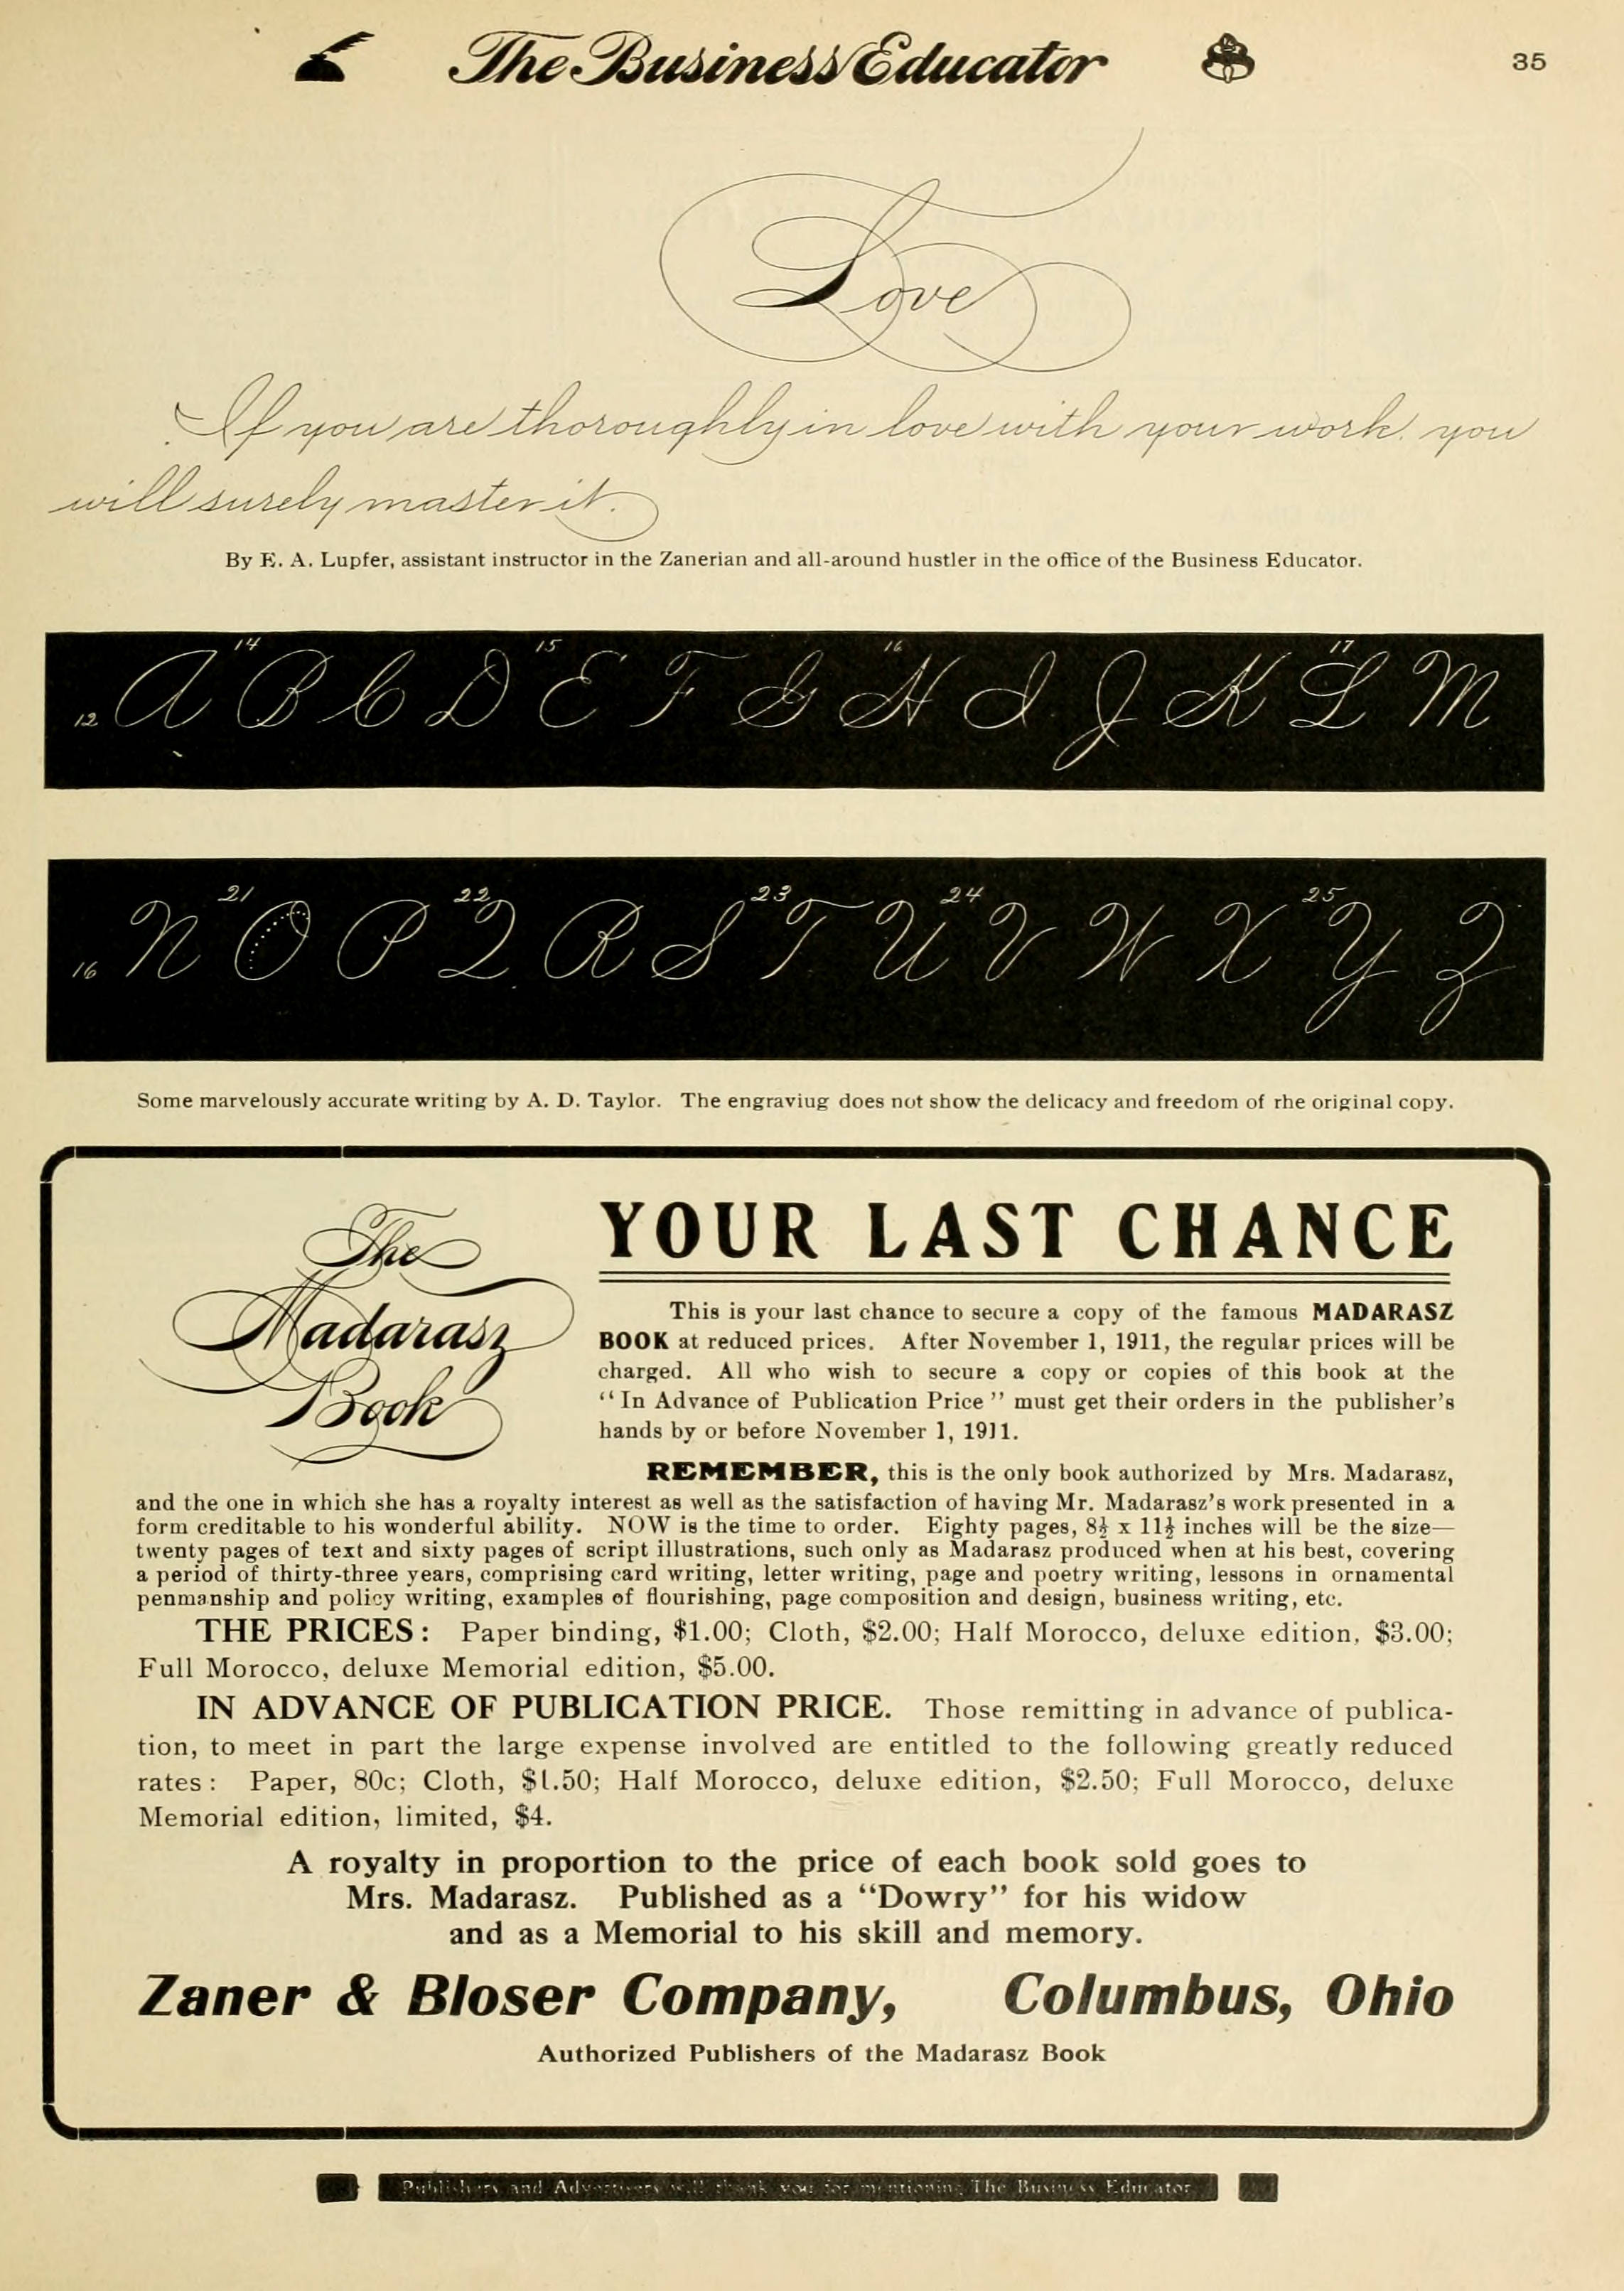 The Business Educator
35
Love
If you are thoroughly in love with your work, you
will surely master it.
By E. A. Lupfer, assistant instructor in the Zanerian and all-around hustler in the office of the Business Educator.
14 15 16 17
12 A B C D E F G H I J K L M
21 22 23 24 25
16 N O P Q R S T U V W X Y Z
Some marvelously accurate writing by A. D. Taylor. The engraviug does not show the delicacy and freedom of rhe original copy.
The
Madarasz
Book
YOUR LAST CHANCE
This is your last chance to secure a copy of the famous MADARASZ
BOOK at reduced prices. After November 1, 1911, the regular prices will be
charged. All who wish to secure a copy or copies of this book at the
“In Advance of Publication Price” must get their orders in the publisher's
hands by or before November 1, 1911.
REMEMBER, this is the only book authorized by Mrs. Madarasz,
and the one in which she has a royalty interest as well as the satisfaction of having Mr. Madarasz's work presented in a
form creditable to his wonderful ability. NOW is the time to order. Eighty pages, 8½ x 11½ inches will be the size—
twenty pages of text and sixty pages of script illustrations, such only as Madarasz produced when at his best, covering
a period of thirty-three years, comprising card writing, letter writing, page and poetry writing, lessons in ornamental
penmanship and policy writing, examples of flourishing, page composition and design, business writing, etc.
THE PRICES: Paper binding, $1.00; Cloth, $2.00; Half Morocco, deluxe edition, $3.00;
Full Morocco, deluxe Memorial edition, $5.00.
IN ADVANCE OF PUBLICATION PRICE. Those remitting in advance of publica-
tion, to meet in part the large expense involved are entitled to the following greatly reduced
rates: Paper, 80c; Cloth, $1.50; Half Morocco, deluxe edition, $2.50; Full Morocco, deluxe
Memorial edition, limited, $4.
A royalty in proportion to the price of each book sold goes to
Mrs. Madarasz. Published as a “Dowry” for his widow
and as a Memorial to his skill and memory.
Zaner & Bloser Company, Columbus, Ohio
Authorized Publishers of the Madarasz Book
Publishers and Advertisers will thank you for mentioning The Business Educator